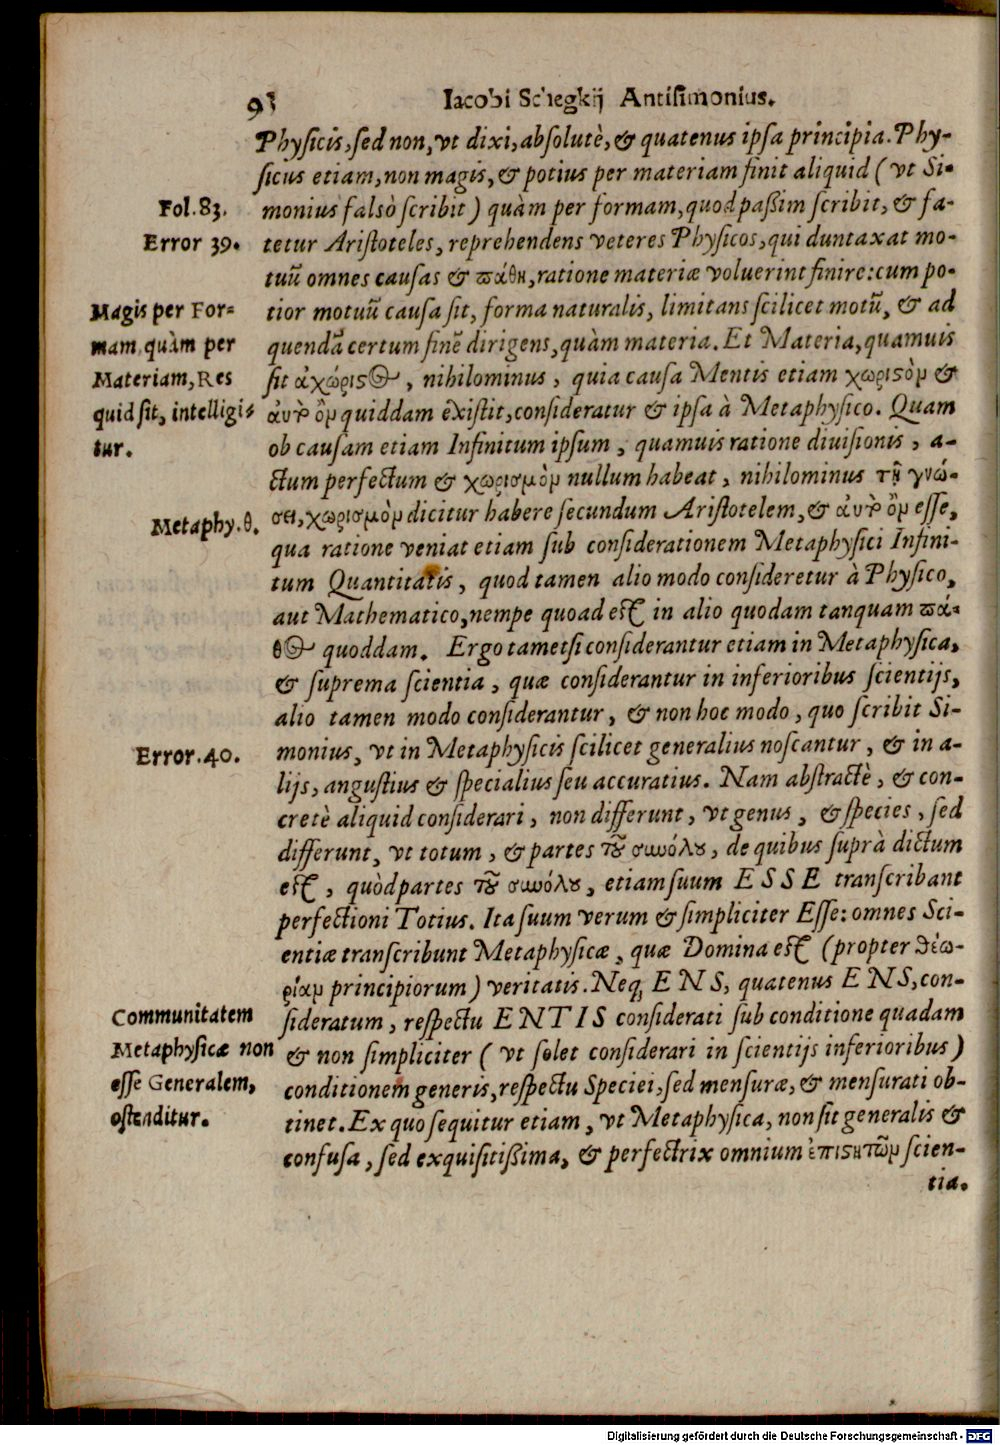 Iacobi Schegkij Antisimonius.
Physicis, sed non, vt dixi, absolutè, & quatenus ipsa principia. Phy-
sicus etiam, non magis, & potius per materiam finit aliquid ( vt Si-
Fol. 83.
monius falsò scribit ) quàm per formam, quod paßim scribit, & fa-
Error 39.
tetur Aristoteles, reprehendens veteres Physicos, qui duntaxat mo-
tuũ omnes causas & πάθη, ratione materiæ voluerint finire: cum po-
Magis per For=
mam quàm per
Materiam, Res
quid sit, intelligi=
tur.
tior motuũ causa sit, forma naturalis, limitans scilicet motũ, & ad
quendã certum finẽ dirigens, quàm materia. Et Materia, quamuis
sit ἀχώριστος, nihilominus, quia causa Mentis etiam χωριστὸν &
ἀυτὸ ὂν quiddam existit, consideratur & ipsa à Metaphysico. Quam
ob causam etiam Infinitum ipsum, quamuis ratione diuisionis, a-
ctum perfectum & χωρισμὸν nullum habeat, nihilominus τῇ γνώ-
Metaphy. θ.
σει, χωρισμὸν dicitur habere secundum Aristotelem, & ἀυτὸ ὂν esse,
qua ratione veniat etiam sub considerationem Metaphysici Infini-
tum Quantitatis, quod tamen alio modo consideretur à Physico,
aut Mathematico, nempe quoad est in alio quodam tanquam πά-
θος quoddam. Ergo tametsi considerantur etiam in Metaphysica,
& suprema scientia, quæ considerantur in inferioribus scientijs,
alio tamen modo considerantur, & non hoc modo, quo scribit Si-
Error. 40.
monius, vt in Metaphysicis scilicet generalius noscantur, & in a-
lijs, angustius & specialius seu accuratius. Nam abstractè, & con-
cretè aliquid considerari, non differunt, vt genus, & species, sed
differunt, vt totum, & partes τοῦ συνόλου, de quibus suprà dictum
est, quòd partes τοῦ συνόλου, etiam suum ESSE transcribant
perfectioni Totius. Ita suum verum & simpliciter Esse: omnes Sci-
entiæ transcribunt Metaphysicæ, quæ Domina est (propter θεω-
ρίαν principiorum) veritatis. Neq; ENS, quatenus ENS, con-
Communitatem
Metaphysicæ non
esse Generalem,
ostenditur.
sideratum, respectu ENTIS considerati sub conditione quadam
& non simpliciter ( vt solet considerari in scientijs inferioribus )
conditionem generis, respectu Speciei, sed mensuræ, & mensurati ob-
tinet. Ex quo sequitur etiam, vt Metaphysica, non sit generalis &
confusa, sed exquisitißima, & perfectrix omnium ἐπιστητῶν scien-
tia.
Digitalisierung gefördert durch die Deutsche Forschungsgemeinschaft - DFG